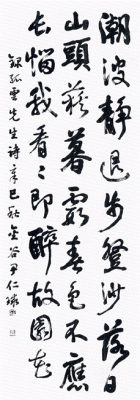 潮波靜退步登沙落日
山頭簇暮霞春色不應
長惱我看々即醉故園花
錄孤雲先生詩辛巳秋谷尹仁